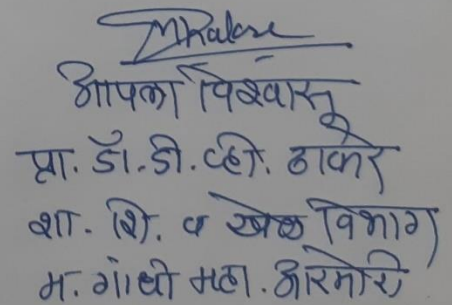 आपला विश्वासू
प्रा. डॉ. डी. व्ही. ठाकरे
शा. शि. व खेळ विभाग
म. गांधी महा. आरमोरी